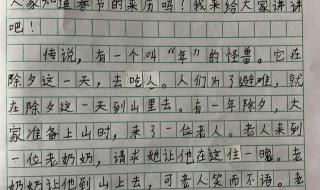 人家知道春节的来历吗?我来给大家讲讲
吧!
传说,有一个叫“年”的怪兽。它在
除夕这一天,去吃人。人们为了避难,就
在除夕这一天到山里去。有一年除夕,大
家准备上山时,来了一位老人。老人来到
一位老奶奶,请求她让他在这住一晚。老
奶奶让他到山上去,可老人笑而不语。老